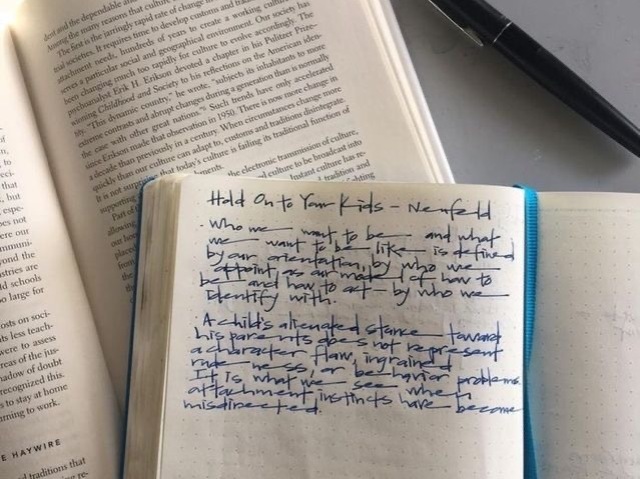 dent and the dependable
Among the many reason that culture
The first is the jarringly rapid rate of change in
trial societies. It requires time to develop customs and
attachment needs, hundreds of years to create a working culture
serves a particular social and geographical environment. Our society has
been changing much too rapidly for culture to evolve accordingly. The
psychoanalyst Erik H. Erikson devoted a chapter in his Pulitzer Prize–
winning Childhood and Society to his reflections on the American iden-
tity. "This dynamic country," he wrote, "subjects its inhabitants to more
extreme contrasts and abrupt changes during a generation than is normally
the case with other great nations." Such trends have only accelerated
since Erikson made that observation in 1950. There is now more change in
a decade than previously in a century. When circumstances change more
quickly than our culture can adapt to, customs and traditions disintegrate.
It is not surprising that today's culture is failing its traditional function of
supporting
Part of
the electronic transmission of culture,
culture to be broadcast into
Instant culture has re-
tradition and
Hold On to Your Kids – Neufeld
- Who we want to be and what
we want to be like is defined
by our orientation, by who we
appoint as our model of how to
be and how to act – by who we
identify with.
A child's alienated stance toward
his parents does not represent
a character flaw, ingrained
rudeness, or behavior problems.
It is what we see when
attachment instincts have become
misdirected.
ere our
communi-
yond the
stries are
d schools
o large for
osts on soci-
ts less teach-
were to assess
reas of the jus-
hadow of doubt
recognized this.
s to stay at home
urning to work.
E HAYWIRE
d traditions that